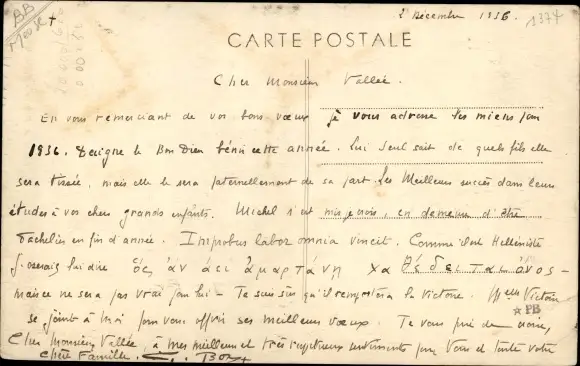 BB
Meuse
2 Décembre 1936.
1374
CARTE POSTALE
Cher Monsieur Vallée.
En vous remerciant de vos bons vœux je vous adresse les miens pour
1936. Daigne le Bon Dieu bénir cette année. Lui seul sait de quels fils elle
sera tissée, mais elle le sera paternellement de sa part. Les Meilleurs succès dans leurs
études à vos chers grands enfants. Michel s'est mis, je crois, en demeure d'être
bachelier en fin d'année. Improbus labor omnia vincit. Comme il est Helléniste
j'oserais lui dire ὅς ἀν ἀει ἁμαρτάνῃ
mais ce ne sera pas vrai pour lui - Je suis sûr qu'il remportera la victoire. Melle
se joint à moi pour vous offrir ses meilleurs vœux. Je vous prie de croire,
PB
Cher Monsieur Vallée, à mes meilleurs et très respectueux sentiments pour Vous et toute votre
chère Famille.